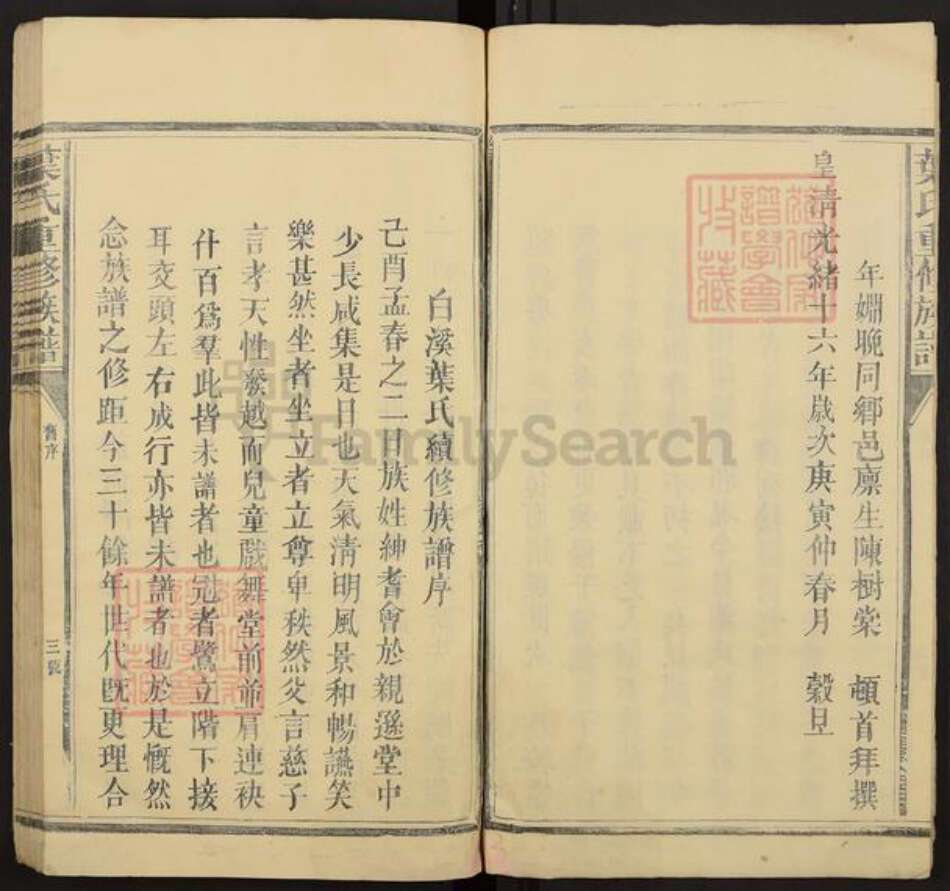 葉氏重修族譜
年婣晚同鄉邑廩生陳樹棠 頓首拜撰
皇清光緒十六年歲次庚寅仲春月 穀旦
譜學會
收藏
白溪葉氏續修族譜序
己酉孟春之二日族姓紳耆會於親遜堂中
少長咸集是日也天氣清明風景和暢讌笑
樂甚然坐者坐立者立尊卑秩然父言慈子
言孝天性發越而兒童戲舞堂前並肩連袂
什百爲羣此皆未譜者也冠者鷺立階下接
耳交頭左右成行亦皆未譜者也於是慨然
念族譜之修距今三十餘年世代旣更理合
葉氏重修族譜
舊序
三張
FamilySearch